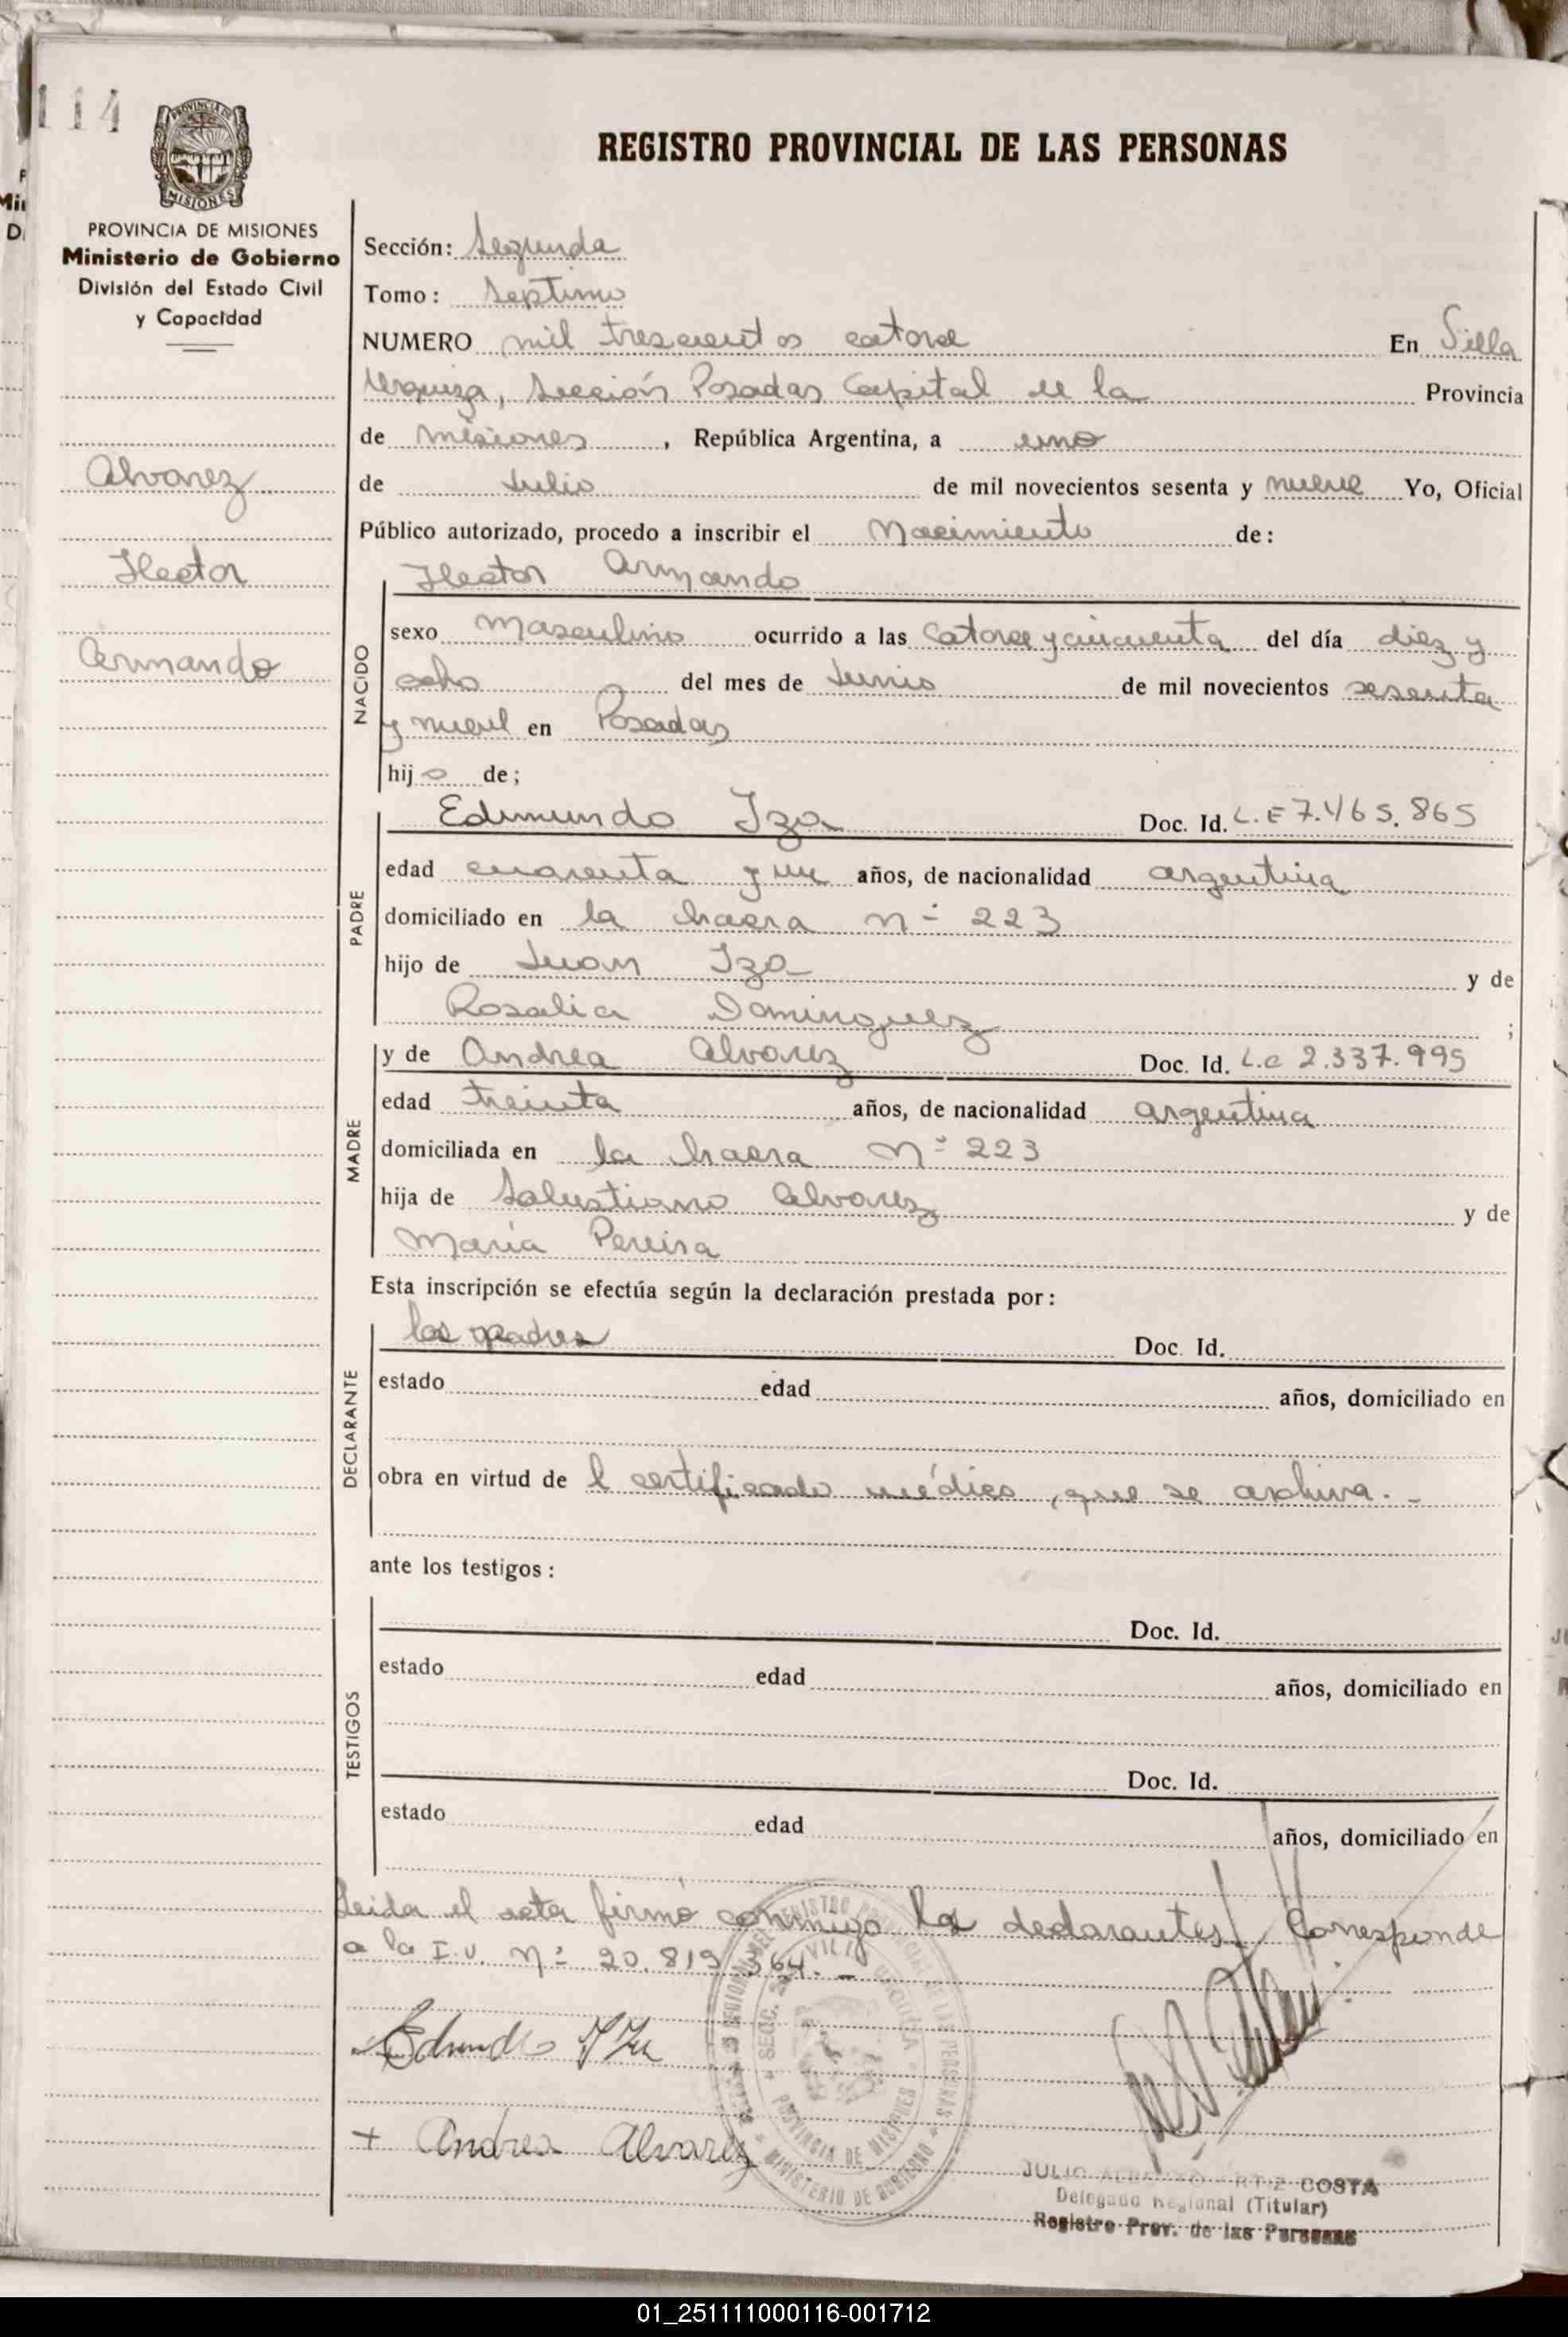 114
PROVINCIA DE MISIONES
Ministerio de Gobierno
División del Estado Civil
y Capacidad
Alvarez
Hector
Armando
REGISTRO PROVINCIAL DE LAS PERSONAS
Sección: Segunda
Tomo: Septimo
NUMERO mil trescientos catorce En Villa
Urquiza, Sección Posadas Capital de la Provincia
de Misiones, República Argentina, a uno
de Julio de mil novecientos sesenta y nueve Yo, Oficial
Público autorizado, procedo a inscribir el Nacimiento de:
NACIDO
Hector Armando
sexo Masculino ocurrido a las Catorce y cincuenta del día diez y
ocho del mes de Junio de mil novecientos sesenta
y nueve en Posadas
hijo de;
PADRE
Edmundo Iza Doc. Id. L.E 7.465.865
edad cuarenta y un años, de nacionalidad argentina
domiciliado en la chacra n° 223
hijo de Juan Iza y de
Rosalia Dominguez ;
MADRE
y de Andrea Alvarez Doc. Id. L.C 2.337.995
edad treinta años, de nacionalidad argentina
domiciliada en la chacra n° 223
hija de Salustiano Alvarez y de
María Pereira
Esta inscripción se efectúa según la declaración prestada por:
DECLARANTE
los padres Doc. Id.
estado edad años, domiciliado en
obra en virtud de l certificado médico, que se archiva.-
ante los testigos:
TESTIGOS
Doc. Id.
estado edad años, domiciliado en
Doc. Id.
estado edad años, domiciliado en
Leida el acta firmó conmigo los declarantes/ Corresponde
a la I.U. N° 20.819.364.-
Edmundo Iza
+ Andrea Alvarez
JULIO ORTIZ COSTA
Delegado Regional (Titular)
Registro Prov. de las Personas
01_251111000116-001712